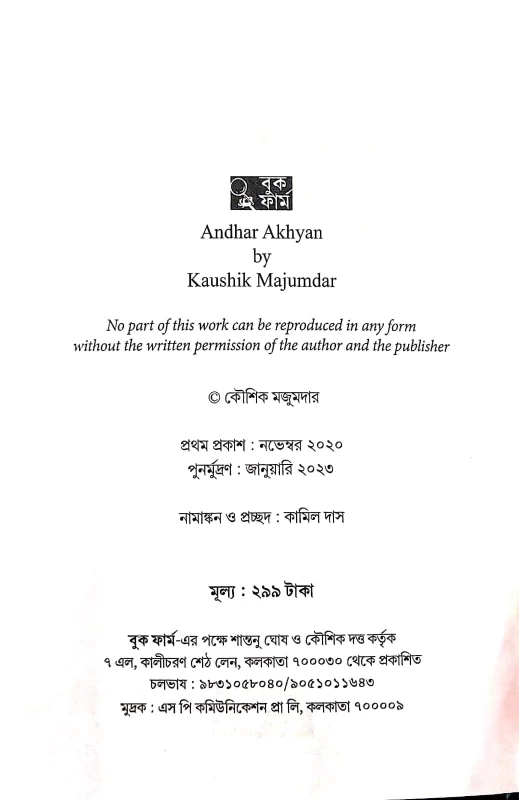 বুক
ফার্ম
Andhar Akhyan
by
Kaushik Majumdar
No part of this work can be reproduced in any form
without the written permission of the author and the publisher
© কৌশিক মজুমদার
প্রথম প্রকাশ : নভেম্বর ২০২০
পুনর্মুদ্রণ : জানুয়ারি ২০২৩
নামাঙ্কন ও প্রচ্ছদ : কামিল দাস
মূল্য : ২৯৯ টাকা
বুক ফার্ম-এর পক্ষে শান্তনু ঘোষ ও কৌশিক দত্ত কর্তৃক
৭ এল, কালীচরণ শেঠ লেন, কলকাতা ৭০০০৩০ থেকে প্রকাশিত
চলভাষ : ৯৮৩১০৫৮০৪০/৯০৫১০১১৬৪৩
মুদ্রক : এস পি কমিউনিকেশন প্রা লি, কলকাতা ৭০০০০৯